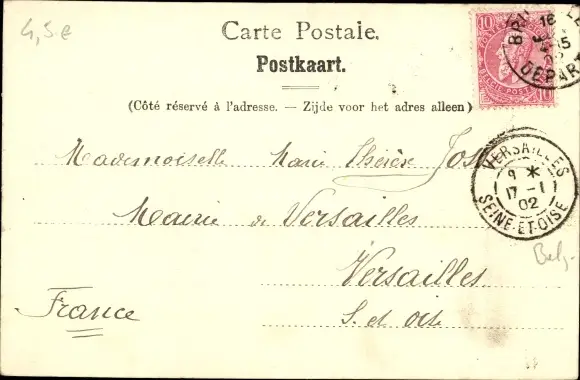 4,5€
Carte Postale.
Postkaart.
(Côté réservé à l'adresse. — Zijde voor het adres alleen)
10
BELGIE-POSTES
16
5
DEPART
VERSAILLES
9 *
17 -1
02
SEINE-ET-OISE
Mademoiselle Marie Thérèse
Mairie de Versailles
Belg.
Versailles
France
S. et oise